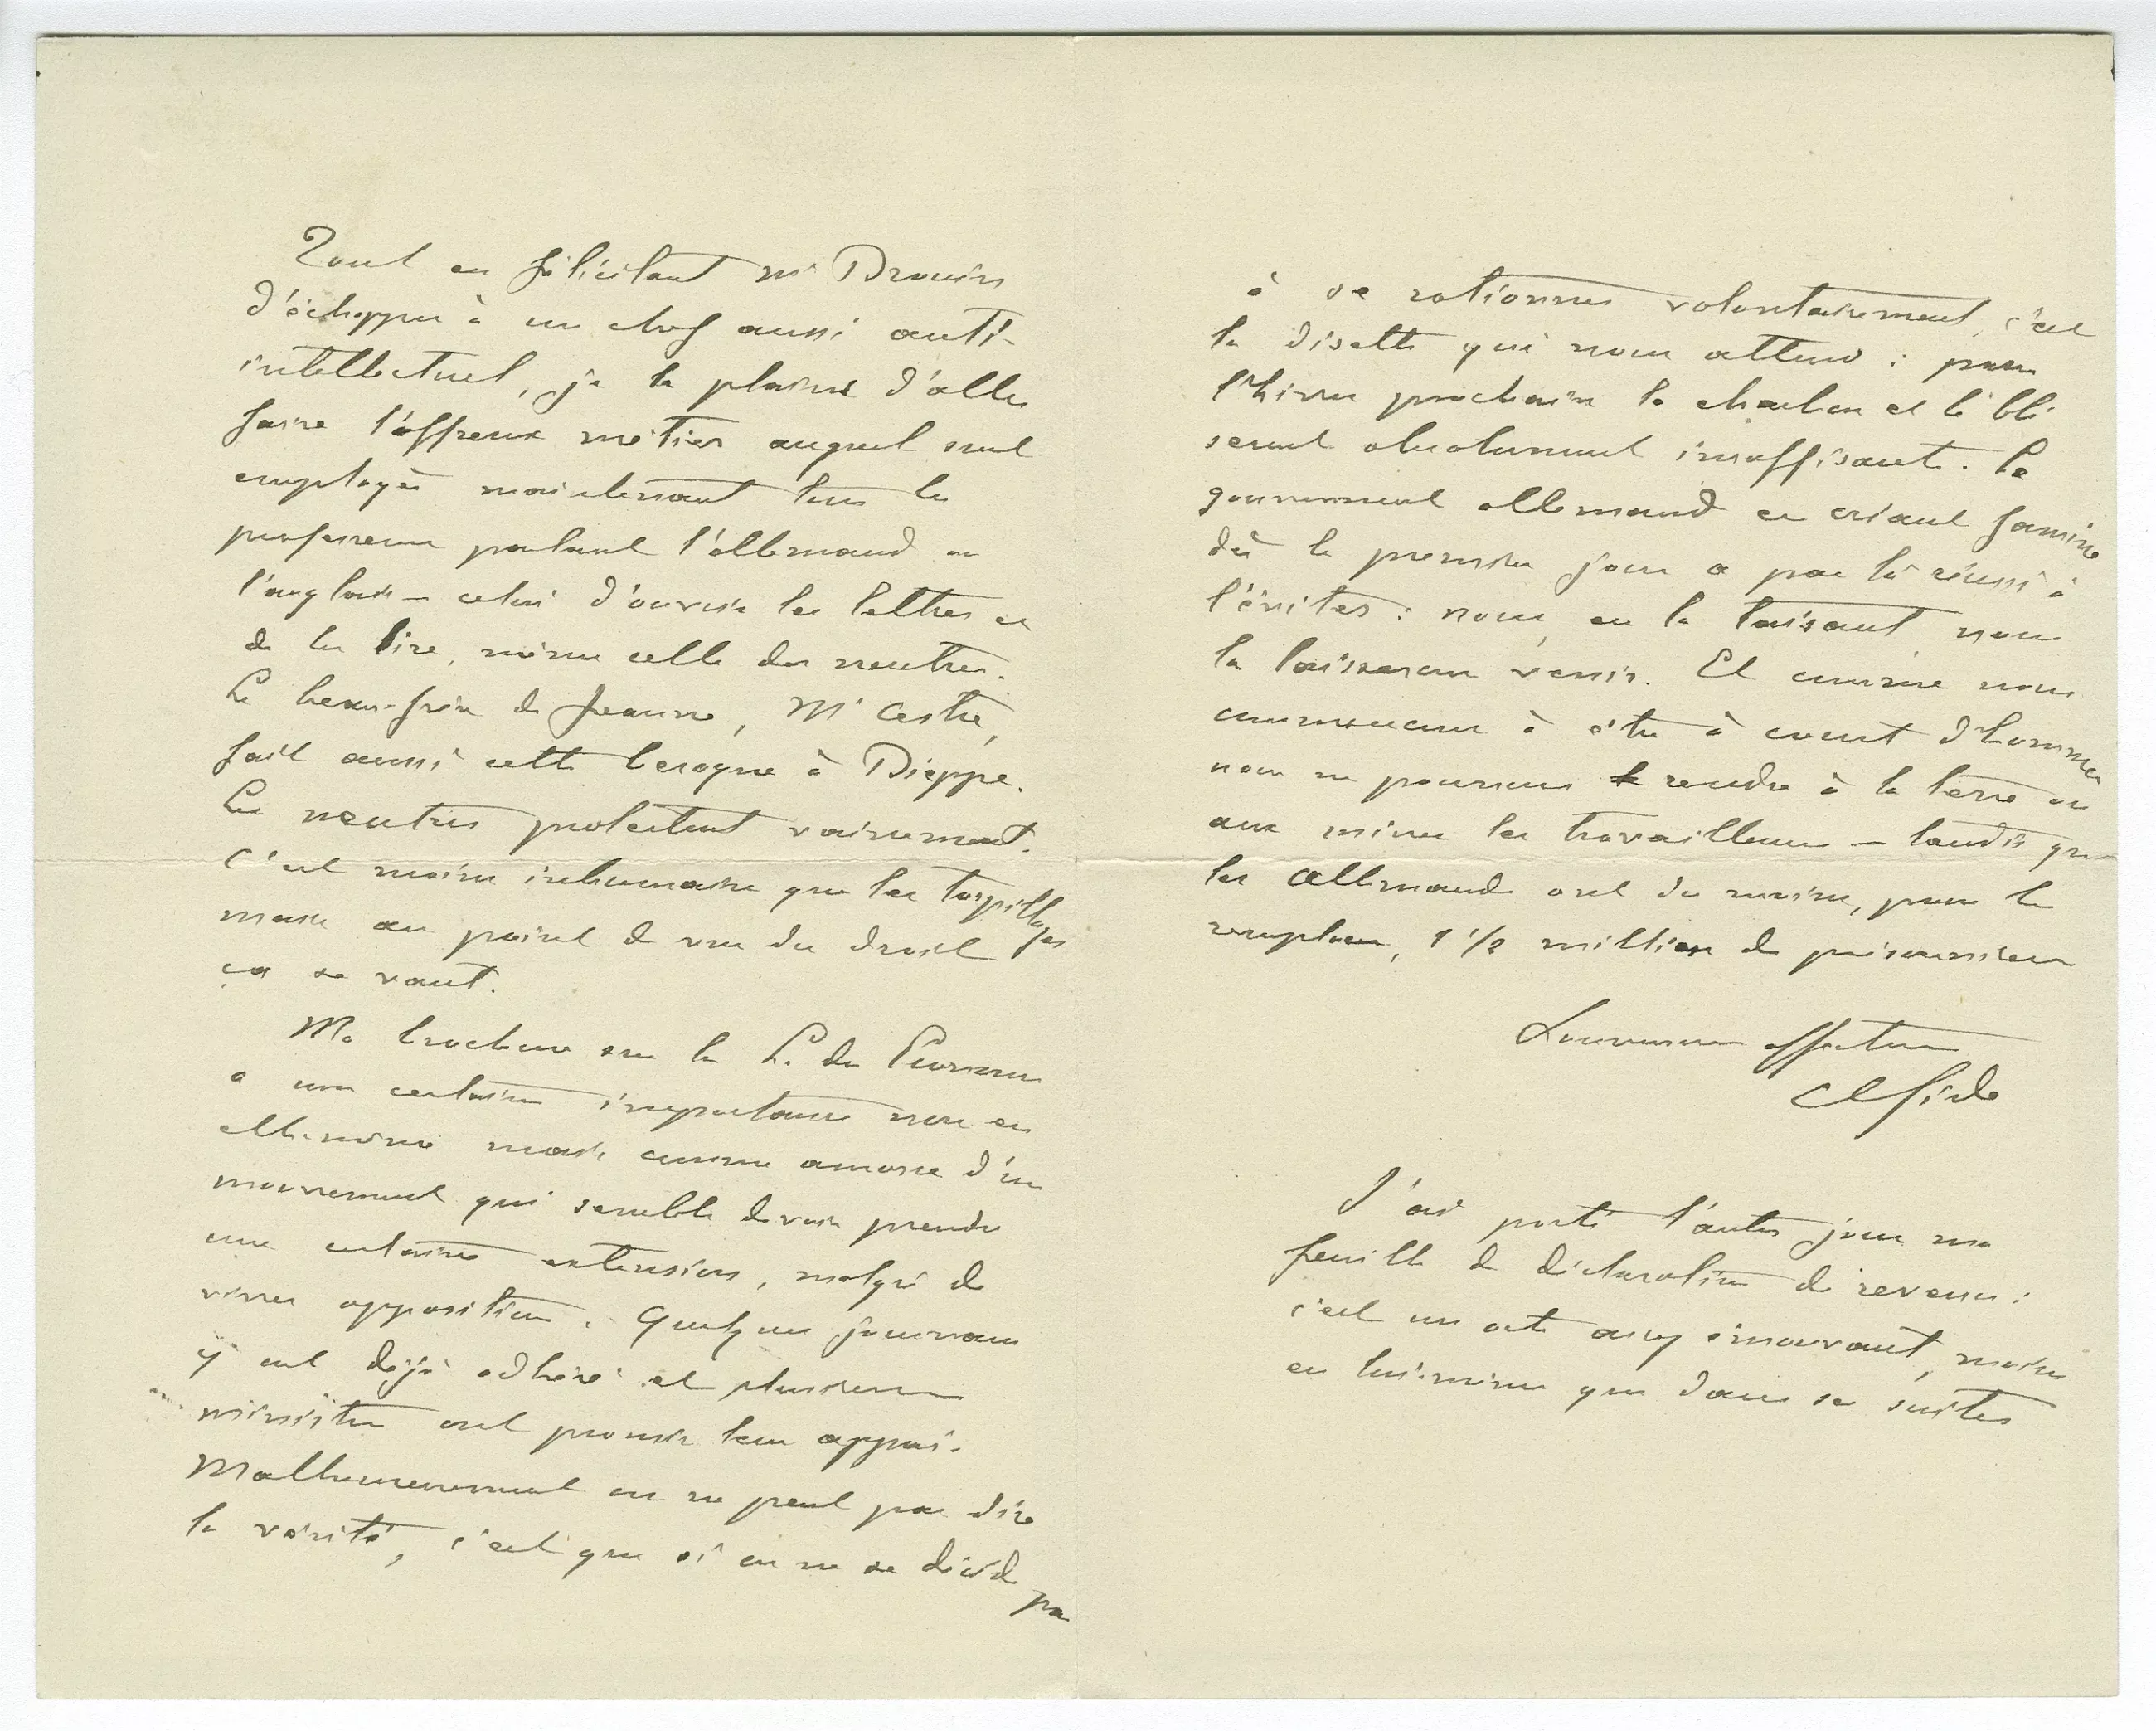 Tout en félicitant Mr Drouin
d'échapper à un chef aussi anti-
intellectuel, je le plains d'aller
faire l'affreux métier auquel sont
employés maintenant tous les
professeurs parlant l'allemand ou
l'anglais — celui d'ouvrir les lettres et
de les lire, même celles des neutres.
Le beau-frère de Jeanne, Mr Cestre,
fait aussi cette besogne à Dieppe.
Les neutres protestent vainement.
C'est moins inhumain que les torpillages
mais au point de vue du droit
ça se vaut.
Ma brochure sur la L. des
a une certaine importance non en
elle-même mais comme amorce d'un
mouvement qui semble devoir prendre
une certaine extension, malgré de
vives oppositions. Quelques journaux
y ont déjà adhéré et plusieurs
ministres ont promis leur appui.
Malheureusement on ne peut pas dire
la vérité, c'est que si on ne se décide pas
à se rationner volontairement, c'est
la disette qui nous attend : pour
l'hiver prochain le charbon et le blé
seront absolument insuffisants. Le
gouvernement allemand en criant famine
dès le premier jour a par là réussi à
l'éviter : nous, en la taisant nous
la laisserons venir. Et comme nous
commençons à être à court d'hommes
nous ne pouvons rendre à la terre ou
aux mines les travailleurs — tandis que
les Allemands ont du moins, pour les
remplacer, 1 1/2 million de prisonniers
affectueux
CGide
J'ai porté l'autre jour ma
feuille de déclaration de revenu :
c'est un acte assez émouvant, moins
en lui-même que dans ses suites